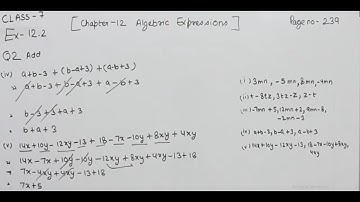 CLASS-7
Ex-12.2
[Chapter-12 Algebric Expressions]
Page no- 239
Q2 Add
(iv) a+b-3 + (b-a+3) + (a-b+3)
⇒ a+b-3 + b-a+3 + a-b+3
⇒ b-3+3+a+3
⇒ b+a+3
(v) 14x+10y-12xy-13 + 18-7x-10y+8xy + 4xy
⇒ 14x-7x+10y-10y-12xy+8xy+4xy-13+18
⇒ 7x-4xy+4xy-13+18
⇒ 7x+5
(i) 3mn, -5mn, 8mn, -4mn
(ii) t-8tz, 3tz-z, z-t
(iii) -7mn+5, 12mn+2, 9mn-8,
-2mn-3
(iv) a+b-3, b-a+3, a-b+3
(v) 14x+10y-12xy-13, 18-7x-10y+8xy,
4xy